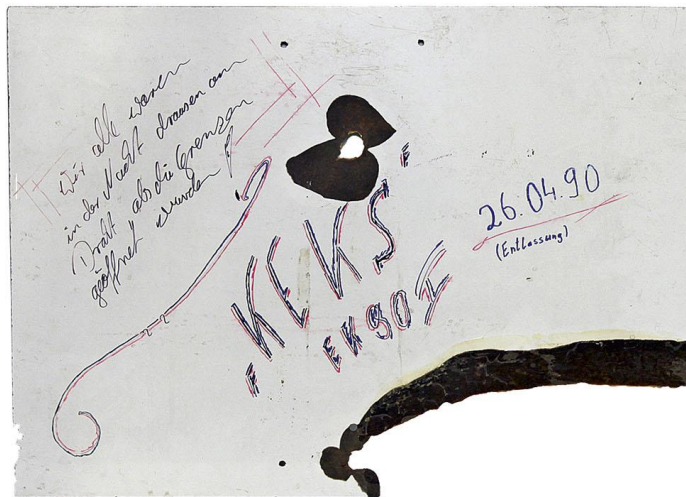 Wir alle waren
in der Nacht draussen am
Draht als die Grenzen
geöffnet wurden !
"KEKS"
EK 90 I
26.04.90
(Entlassung)